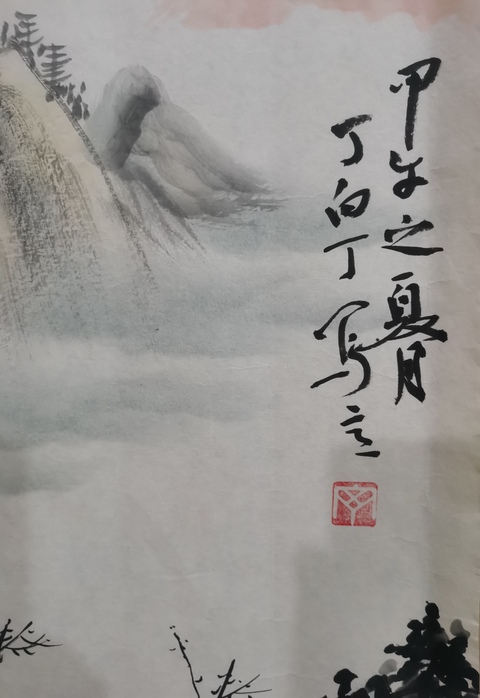 甲午之夏月
丁白丁写之